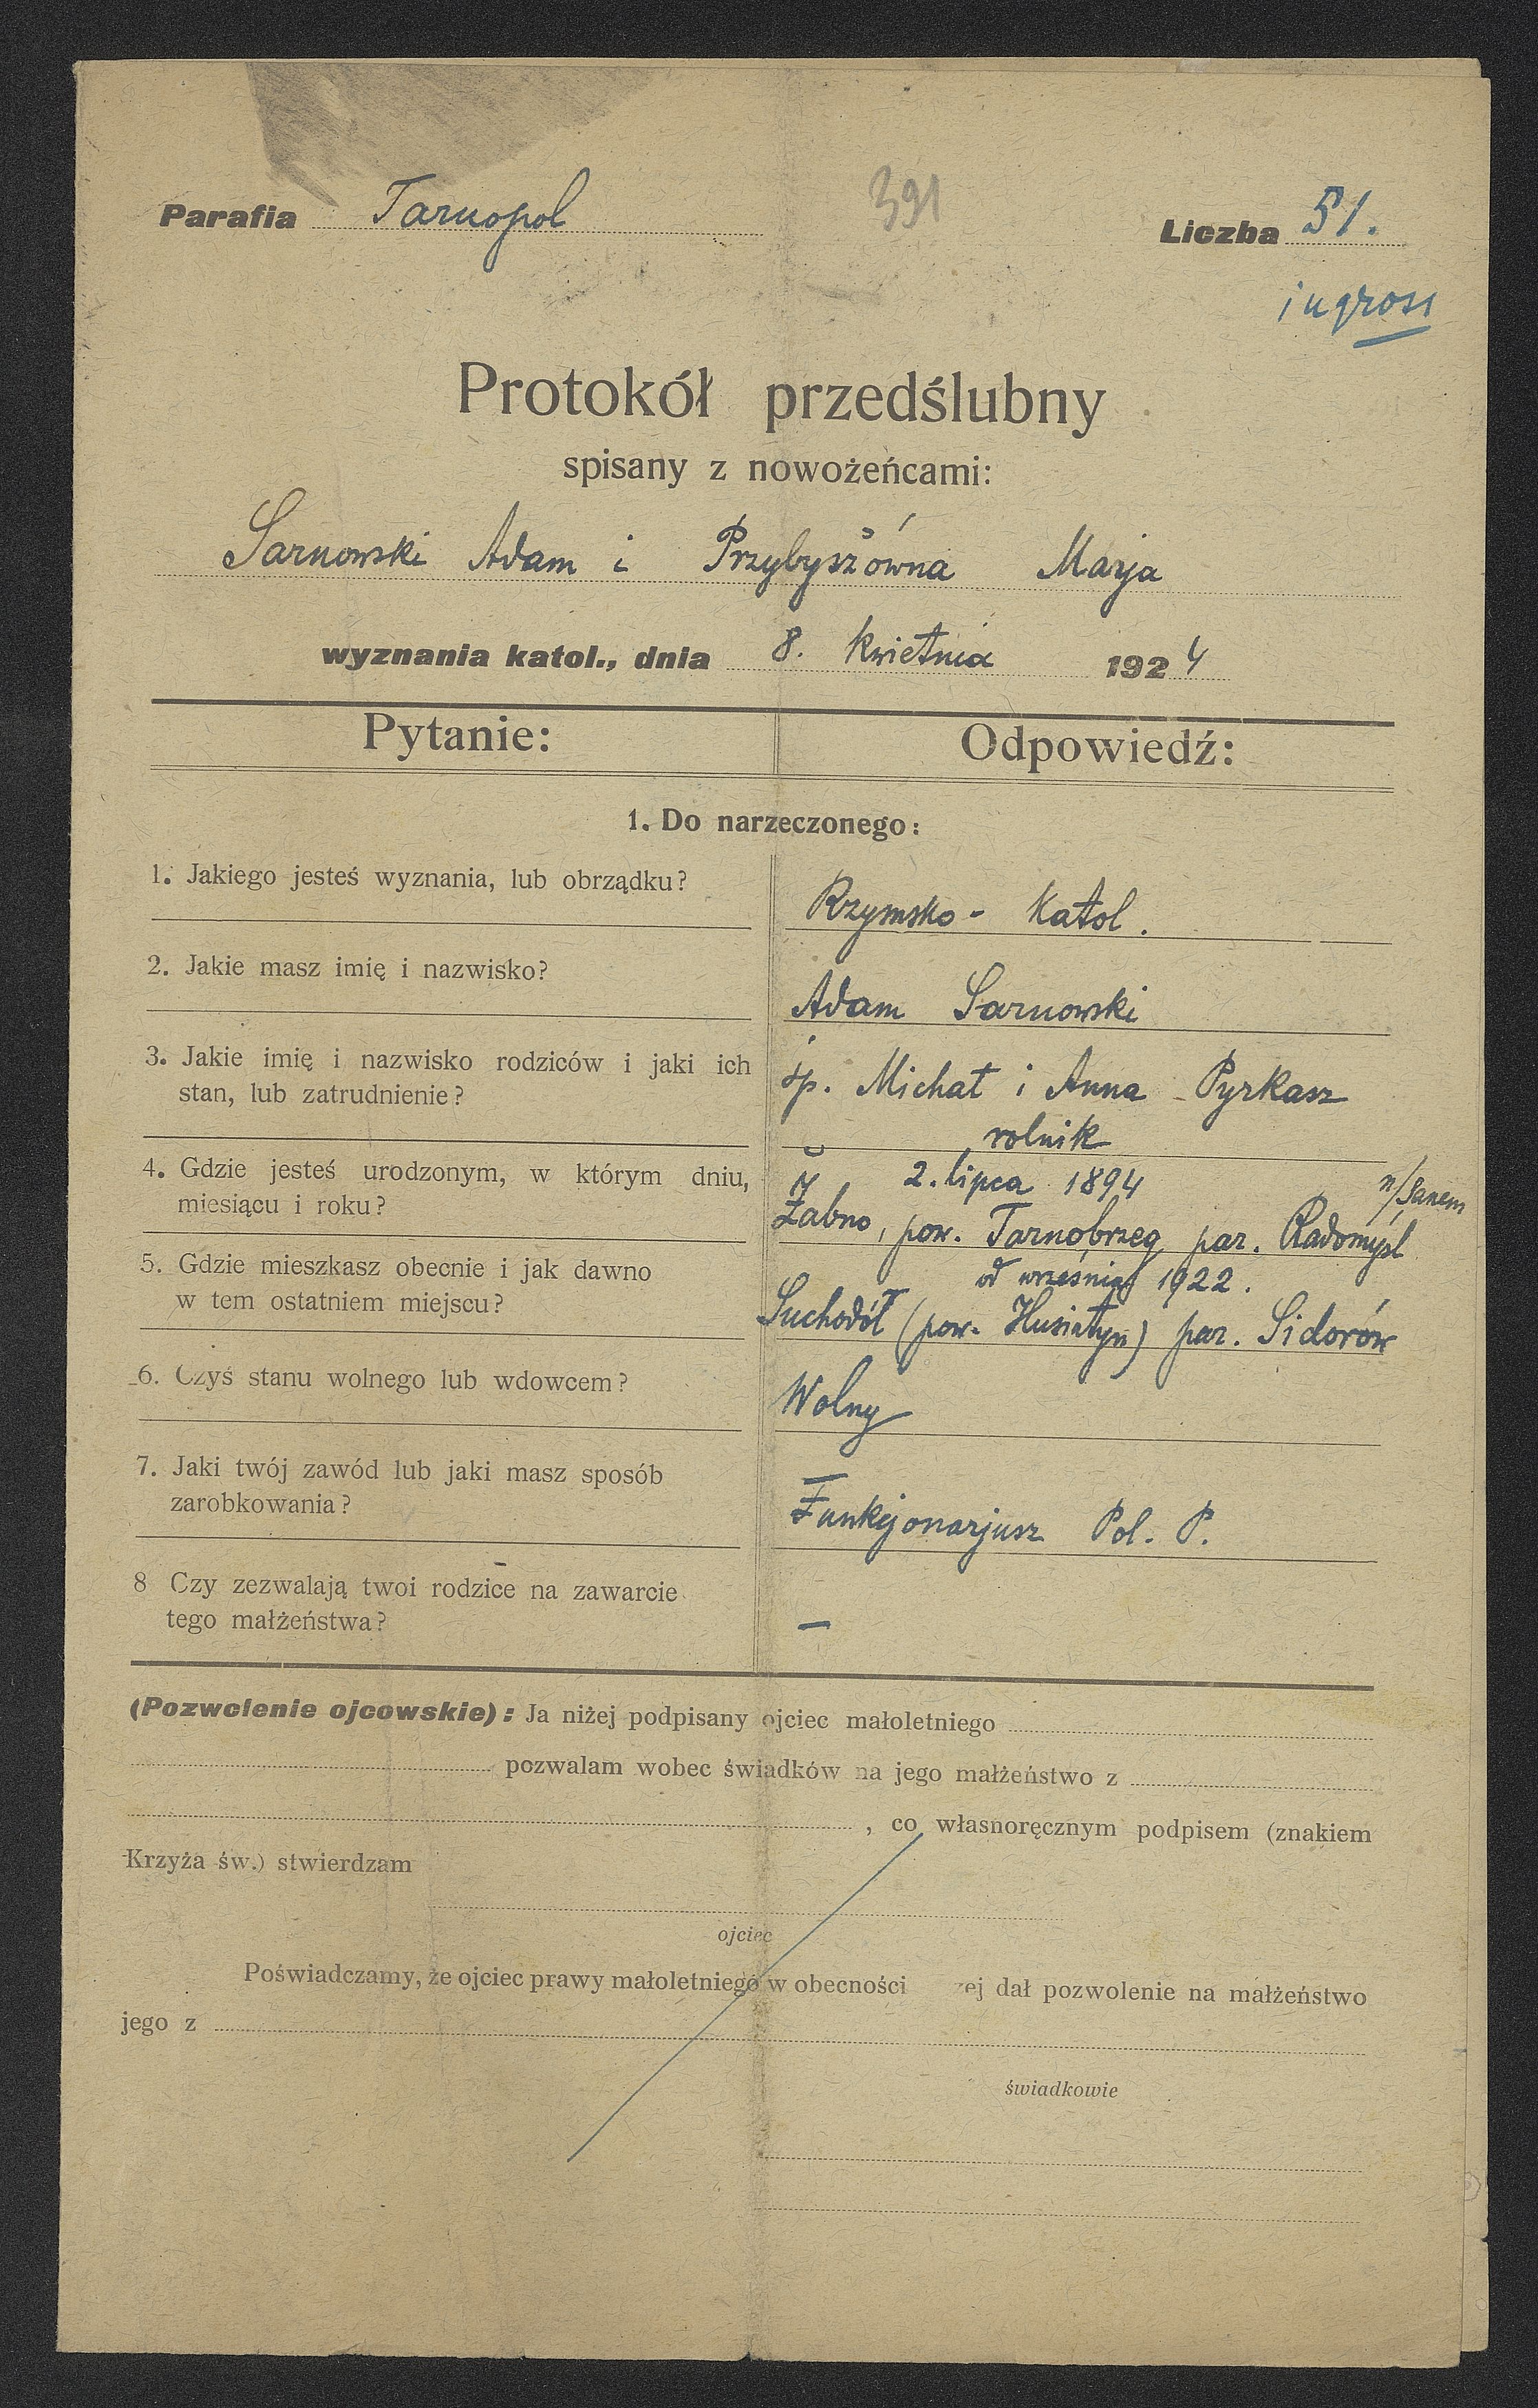 391
Parafia Tarnopol Liczba 51.
ingross
Protokół przedślubny
spisany z nowożeńcami:
Sarnowski Adam i Przybyszówna Marja
wyznania katol., dnia 8. kwietnia 1924
Pytanie: Odpowiedź:
1. Do narzeczonego:
1. Jakiego jesteś wyznania, lub obrządku?
Rzymsko - Katol.
2. Jakie masz imię i nazwisko?
Adam Sarnowski
3. Jakie imię i nazwisko rodziców i jaki ich
stan, lub zatrudnienie?
śp. Michał i Anna Pyrkasz
rolnik
4. Gdzie jesteś urodzonym, w którym dniu,
miesiącu i roku?
2. lipca 1894
w Żabno, pow. Tarnobrzeg par. Radomyśl n/Sanem
5. Gdzie mieszkasz obecnie i jak dawno
w tem ostatniem miejscu?
od września 1922.
Suchodół (pow. Husiatyn) par. Sidorów
6. Czyś stanu wolnego lub wdowcem?
Wolny
7. Jaki twój zawód lub jaki masz sposób
zarobkowania?
Funkcjonarjusz Pol. P.
8 Czy zezwalają twoi rodzice na zawarcie
tego małżeństwa?
—
(Pozwolenie ojcowskie): Ja niżej podpisany ojciec małoletniego
pozwalam wobec świadków na jego małżeństwo z
, co własnoręcznym podpisem (znakiem
Krzyża św.) stwierdzam
ojciec
Poświadczamy, że ojciec prawy małoletniego w obecności ej dał pozwolenie na małżeństwo
jego z
świadkowie